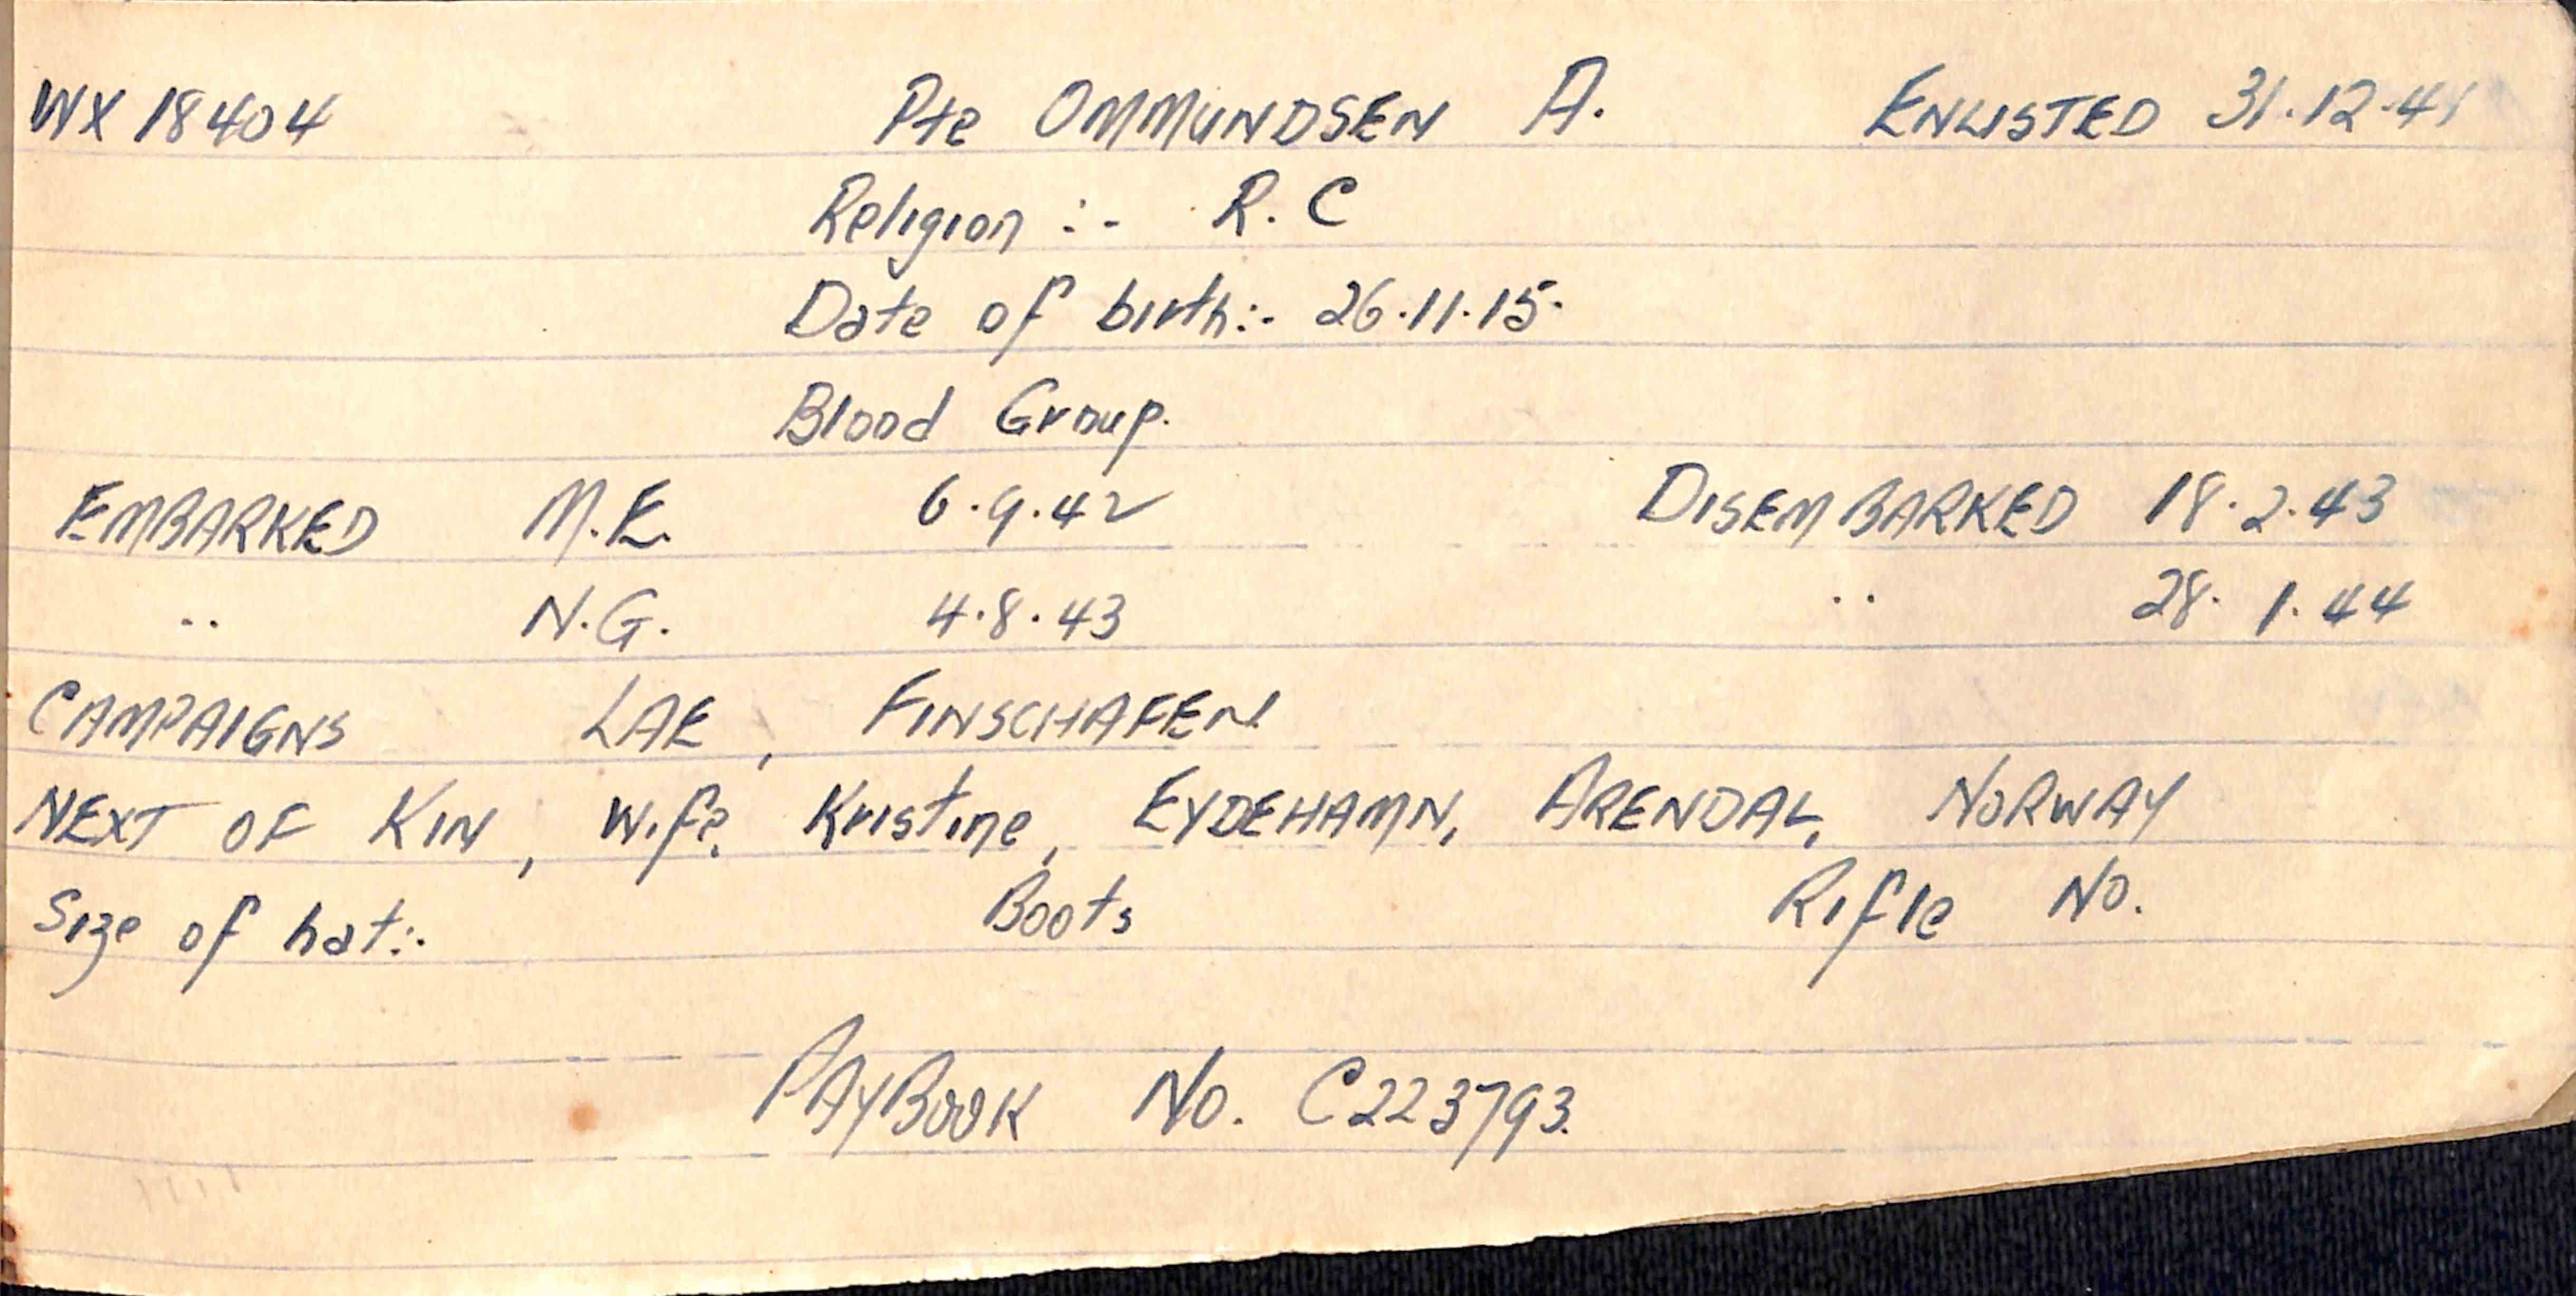 WX 18404 Pte OMMUNDSEN A. ENLISTED 31.12.41
Religion :- R.C
Date of birth:- 26.11.15.
Blood Group.
EMBARKED M.E. 6.9.42 DISEMBARKED 18.2.43
.. N.G. 4.8.43 .. 28.1.44
CAMPAIGNS LAE, FINSCHAFEN
NEXT OF KIN, Wife, Kristine, EYDEHAMN, ARENDAL, NORWAY
Size of hat:- Boots Rifle No.
PAYBOOK No. C223793.